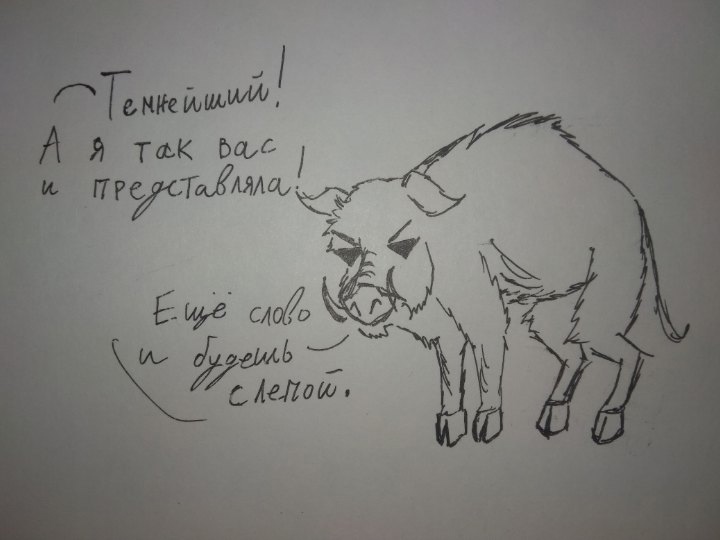 Темнейший!
А я так вас
и представляла!
Ещё слово
и будешь
слепой.